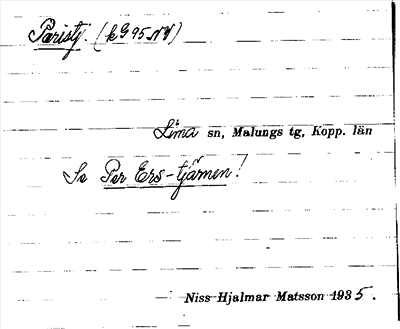 Paristj. (kG 95 NV)
Lima sn, Malungs tg, Kopp. län
Se Per Ers-tjärnen!
Niss Hjalmar Matsson 1935.